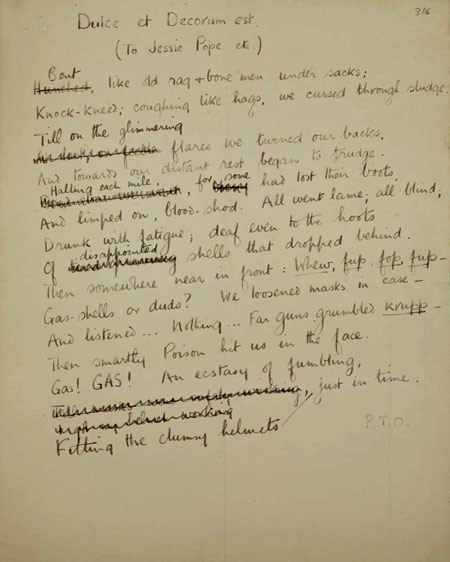 316
Dulce et Decorum est.
(To Jessie Pope etc.)
Bent
Hunched, like old rag & bone men under sacks;
Knock-kneed; coughing like hags, we cursed through sludge.
Till on the glimmering
flares we turned our backs,
And towards our distant rest began to trudge.
Halting each mile, for some
had lost their boots,
And limped on, blood-shod. All went lame; all blind;
Drunk with fatigue; deaf even to the hoots
disappointed
Of shells that dropped behind.
Then somewhere near in front: Whew, fup, fop, fup—
Gas-shells or duds? We loosened masks in case—
And listened... Nothing... Far guns grumbled Krupp—
Then smartly Poison hit us in the face.
Gas! GAS! An ecstasy of fumbling,
, just in time.
Fitting the clumsy helmets
P.T.O.